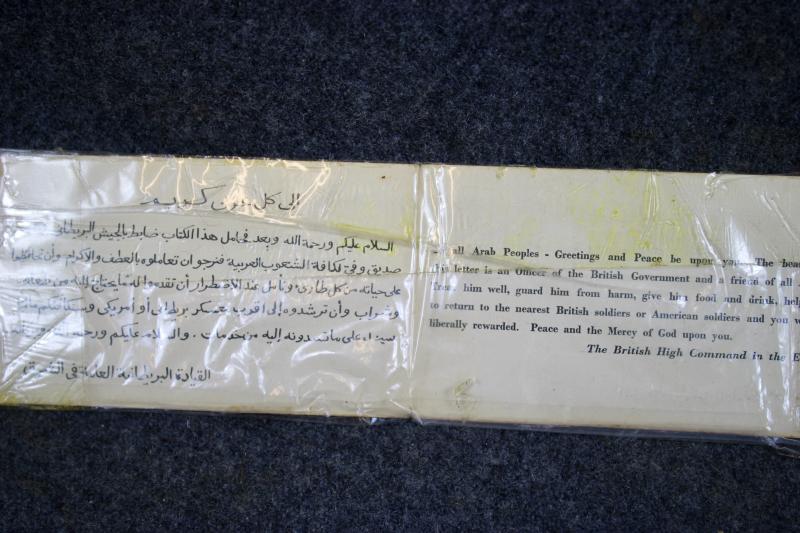 إلى كل عربي كريم
السلام عليكم ورحمة الله وبعد فحامل هذا الكتاب ضابط بالجيش البريطاني
صديق وفي لكافة الشعوب العربية فنرجو أن تعاملوه بالعطف والاكرام وأن تحافظوا
على حياته من كل طارئ ونأمل عند الاضطرار أن تقدموا له مايحتاج إليه من طعام
وشراب وأن ترشدوه إلى أقرب معسكر بريطاني أو أمريكي وسنكافئكم مالياً
بسخاء على ماتسدونه إليه من خدمات. والسلام عليكم ورحمة
القيادة البريطانية العامة في الشرق
all Arab Peoples - Greetings and Peace be upon you. The bea
this letter is an Officer of the British Government and a friend of all
him well, guard him from harm, give him food and drink, hel
to return to the nearest British soldiers or American soldiers and you w
liberally rewarded. Peace and the Mercy of God upon you.
The British High Command in the E